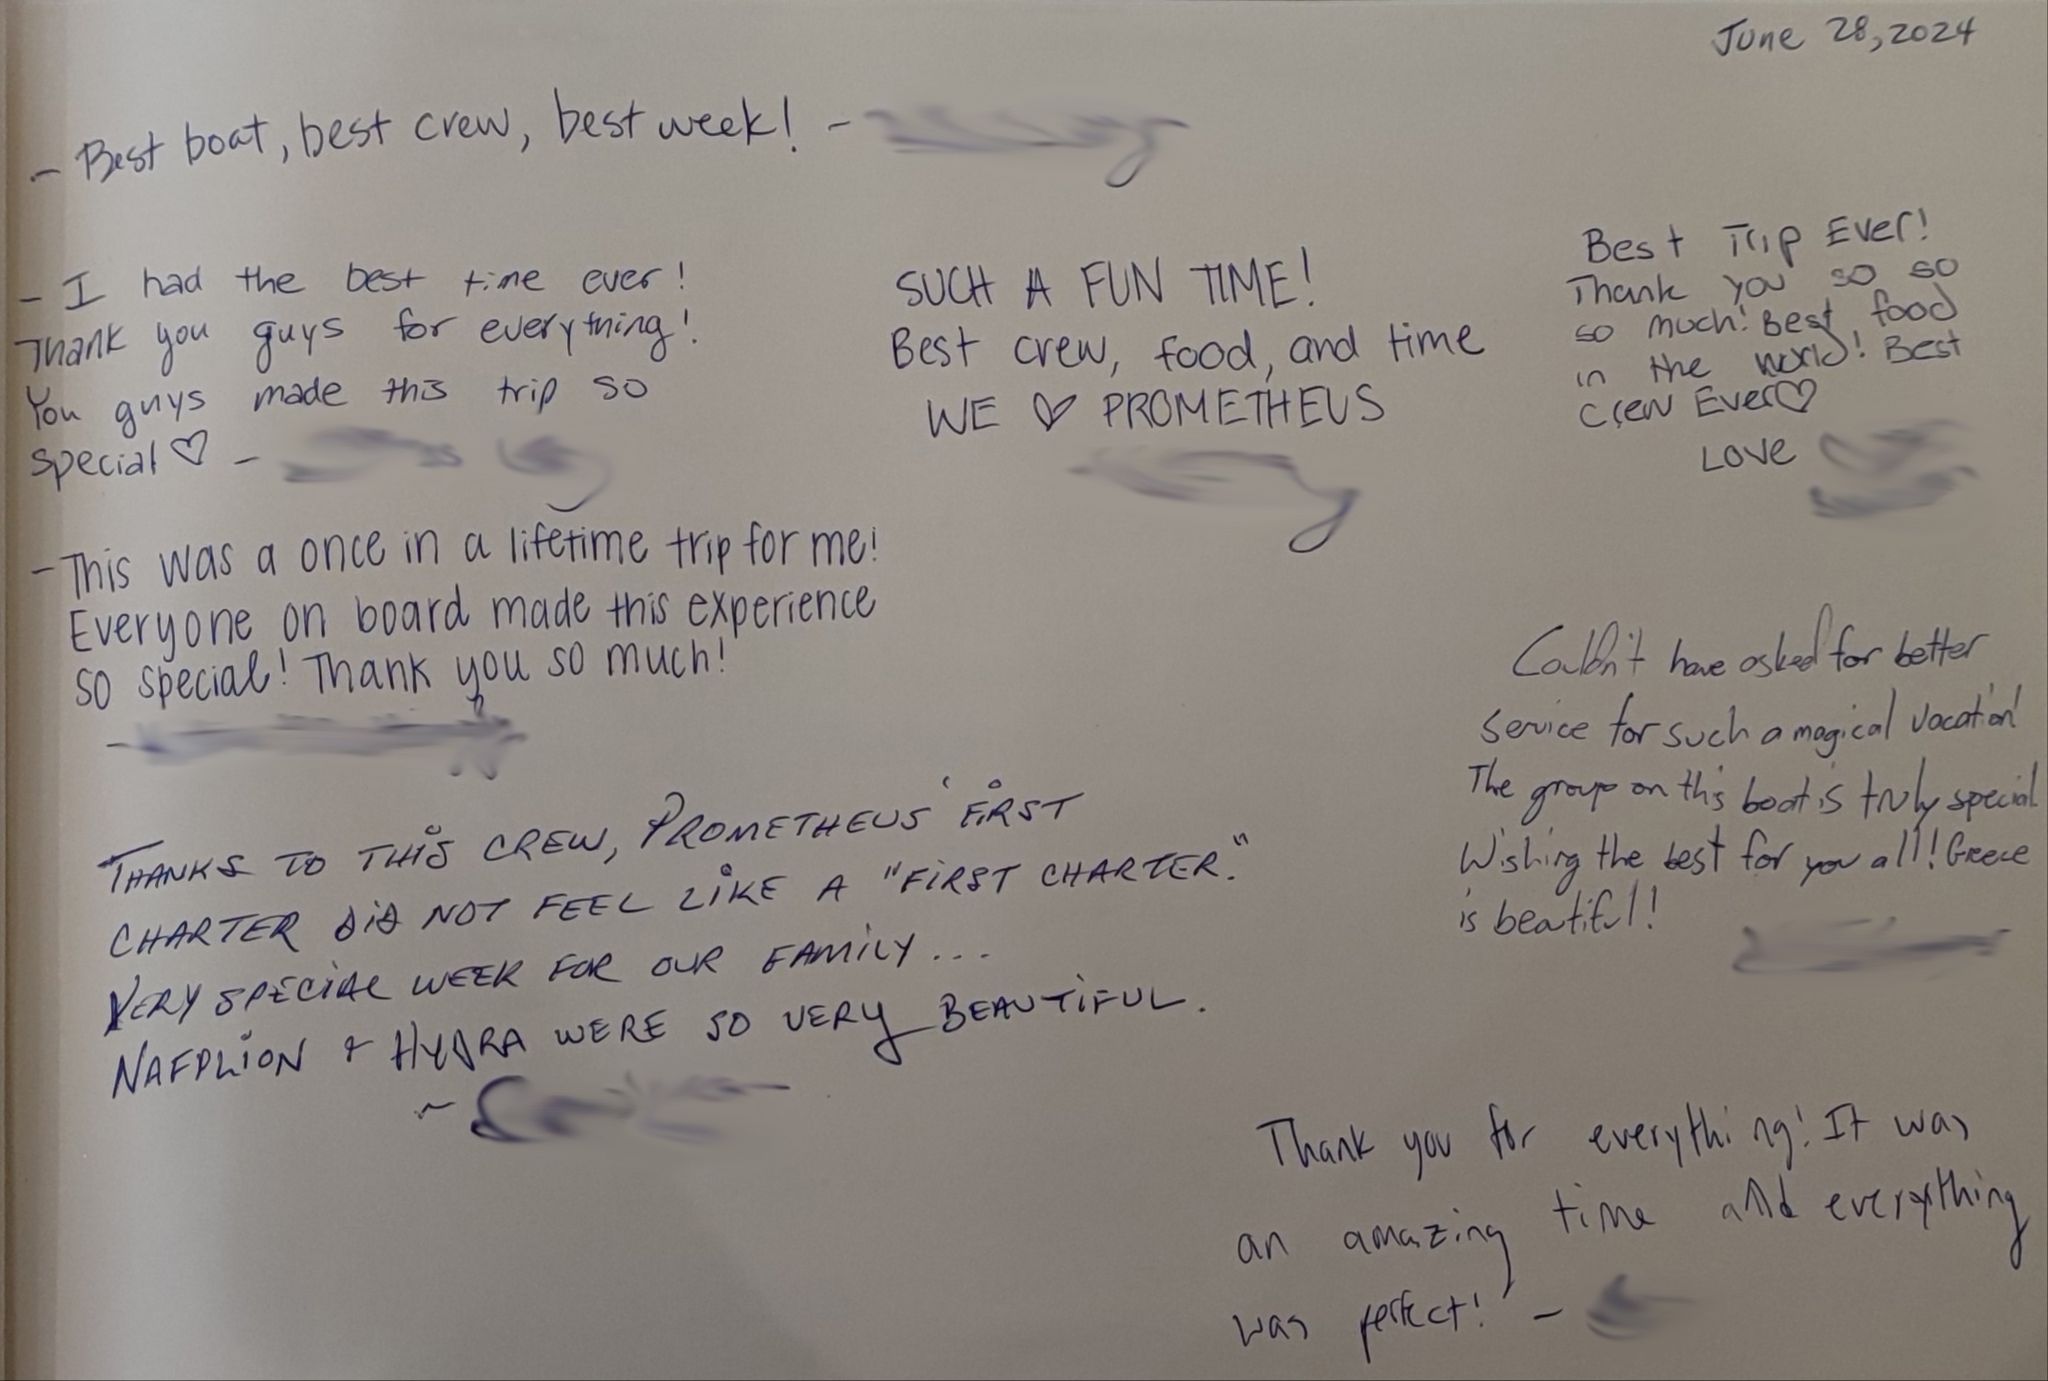 June 28, 2024
- Best boat, best crew, best week! -
- I had the best time ever!
Thank you guys for everything!
You guys made this trip so
special ♡ -
SUCH A FUN TIME!
Best crew, food, and time
WE ♡ PROMETHEUS
Best Trip Ever!
Thank you so so
so much! Best food
in the world! Best
Crew Ever♡
Love
- This was a once in a lifetime trip for me!
Everyone on board made this experience
so special! Thank you so much!
-
Couldn't have asked for better
service for such a magical vacation!
The group on this boat is truly special
Wishing the best for you all! Greece
is beautiful!
THANKS TO THIS CREW, PROMETHEUS' FIRST
CHARTER DID NOT FEEL LIKE A "FIRST CHARTER."
VERY SPECIAL WEEK FOR OUR FAMILY...
NAFPLION & HYDRA WERE SO VERY BEAUTIFUL.
~
Thank you for everything! It was
an amazing time and everything
was perfect! -